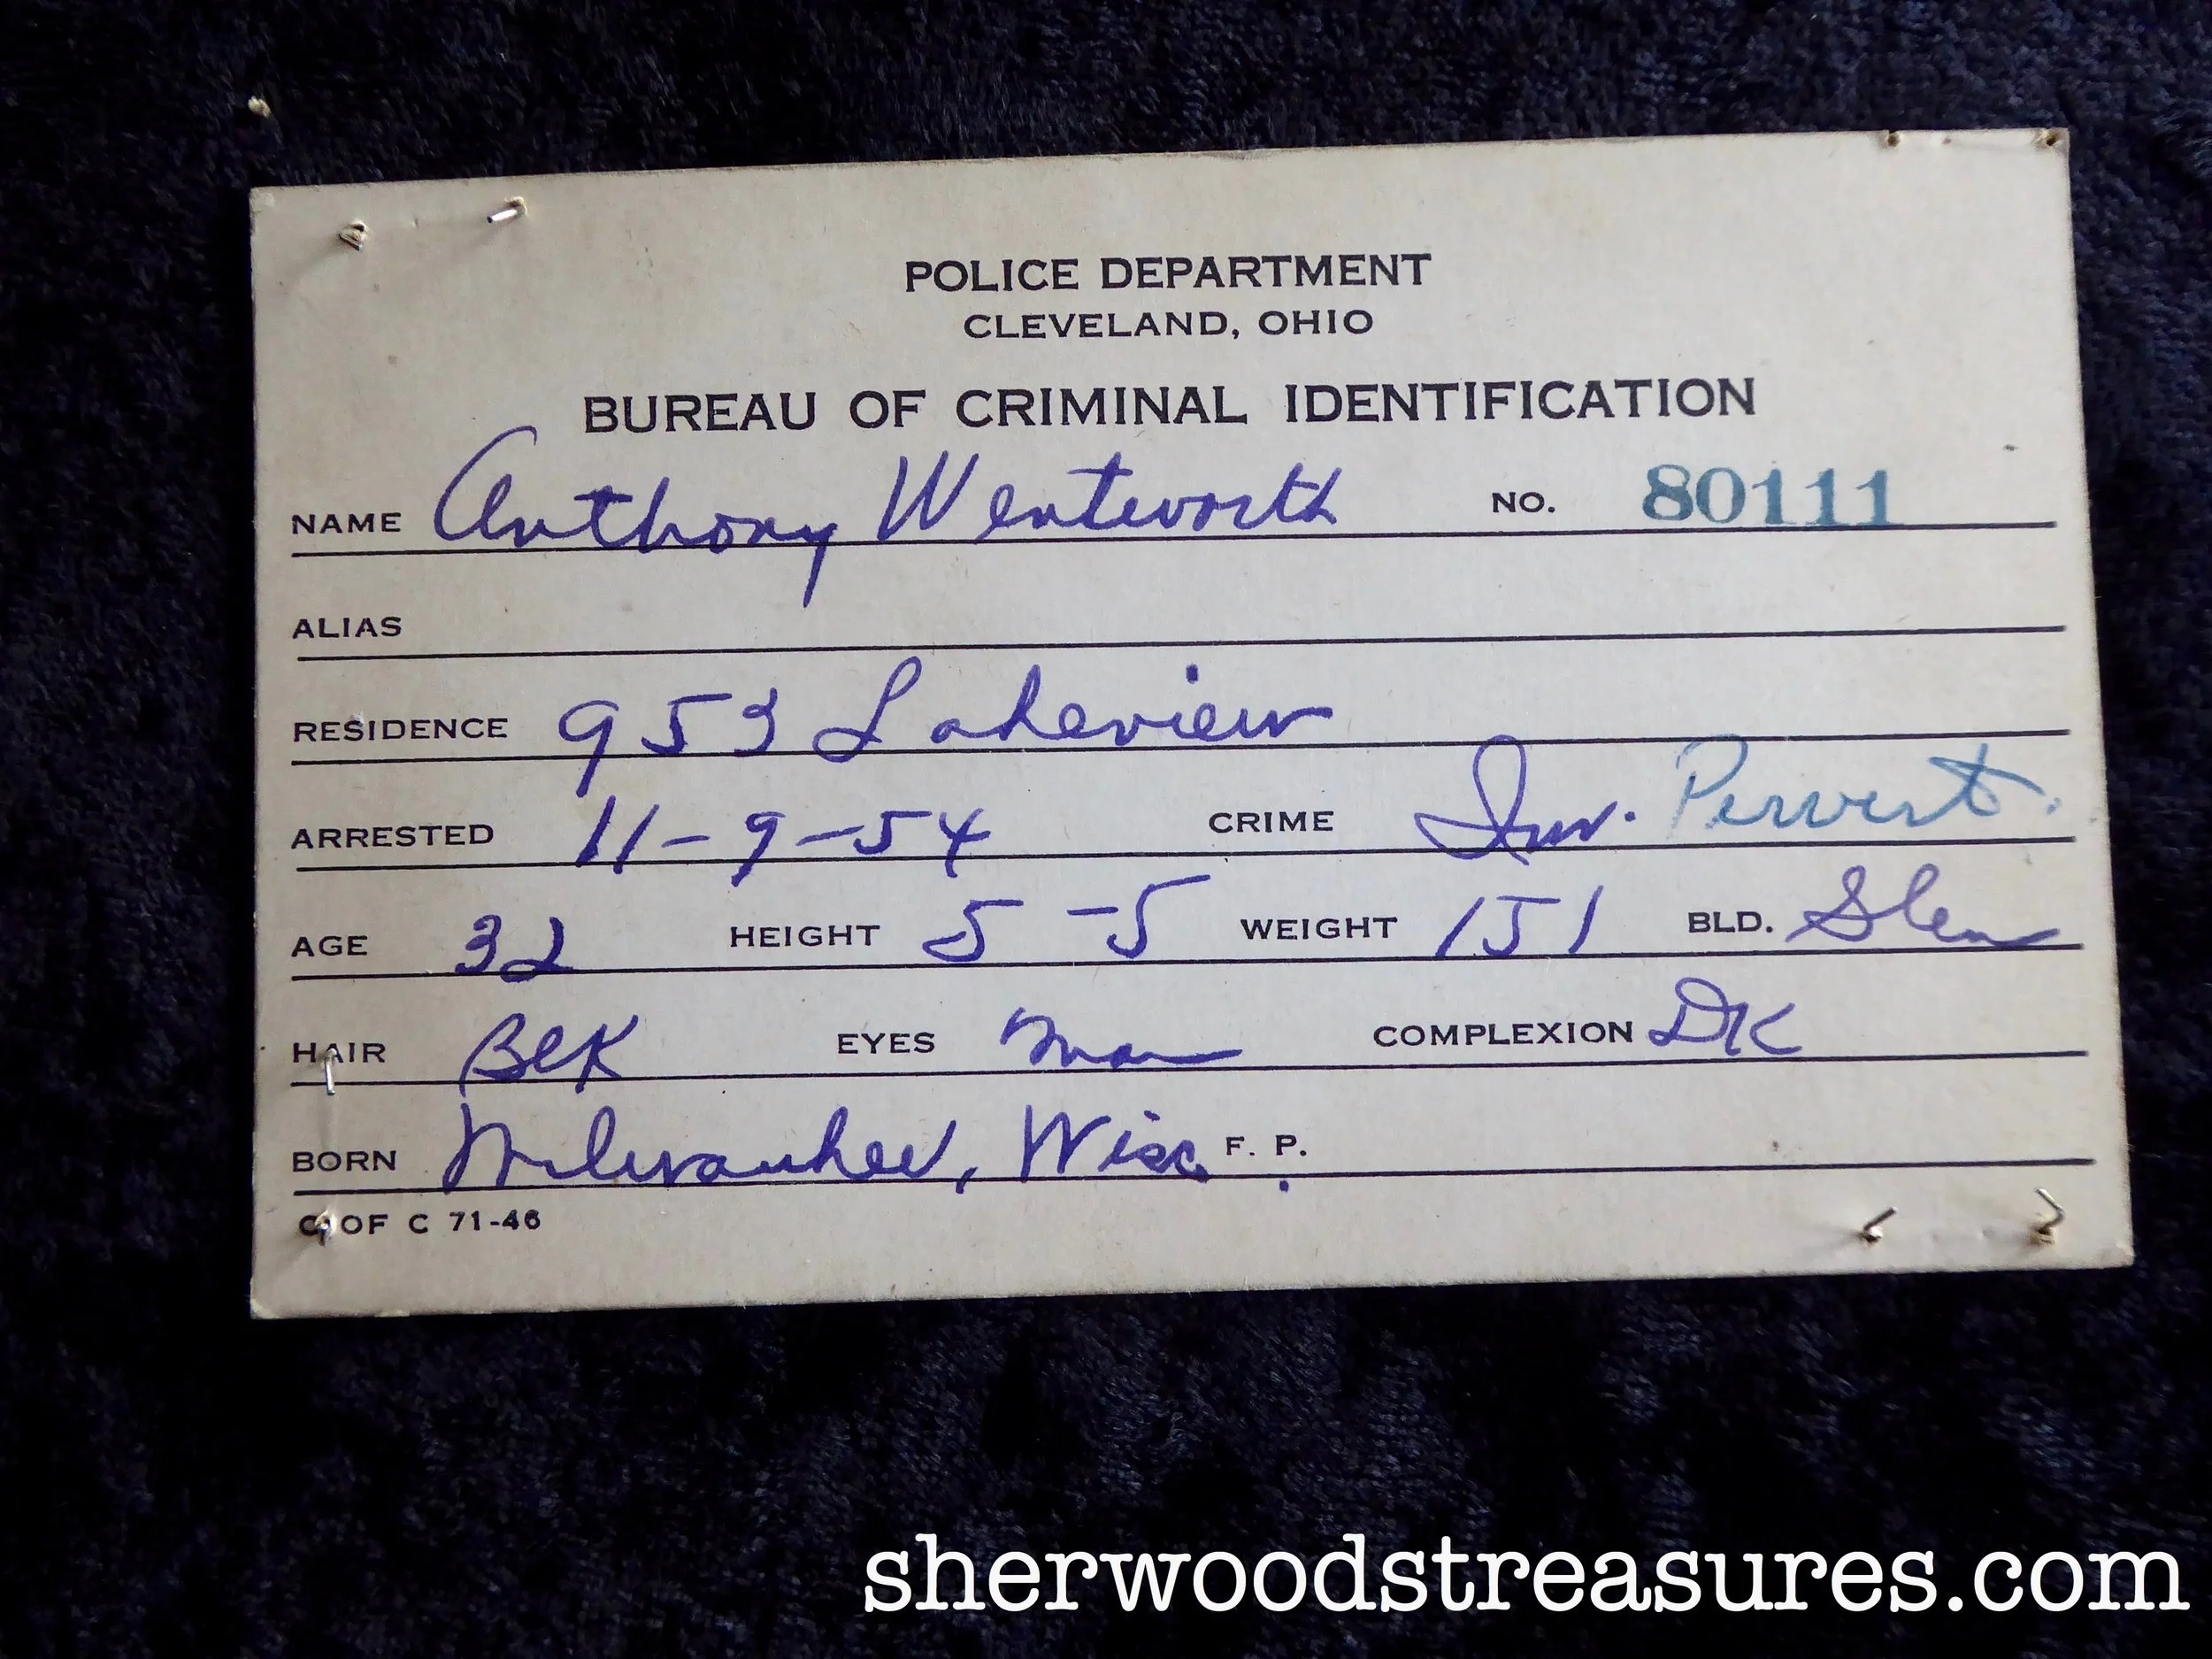 POLICE DEPARTMENT
CLEVELAND, OHIO
BUREAU OF CRIMINAL IDENTIFICATION
NAME Anthony Wentworth NO. 80111
ALIAS
RESIDENCE 953 Lakeview
ARRESTED 11-9-54 CRIME Inv. Pervert.
AGE 32 HEIGHT 5-5 WEIGHT 151 BLD. Slen
HAIR Blk EYES Mar COMPLEXION DK
BORN Milwaukee, Wisc. F. P.
C OF C 71-46
sherwoodstreasures.com